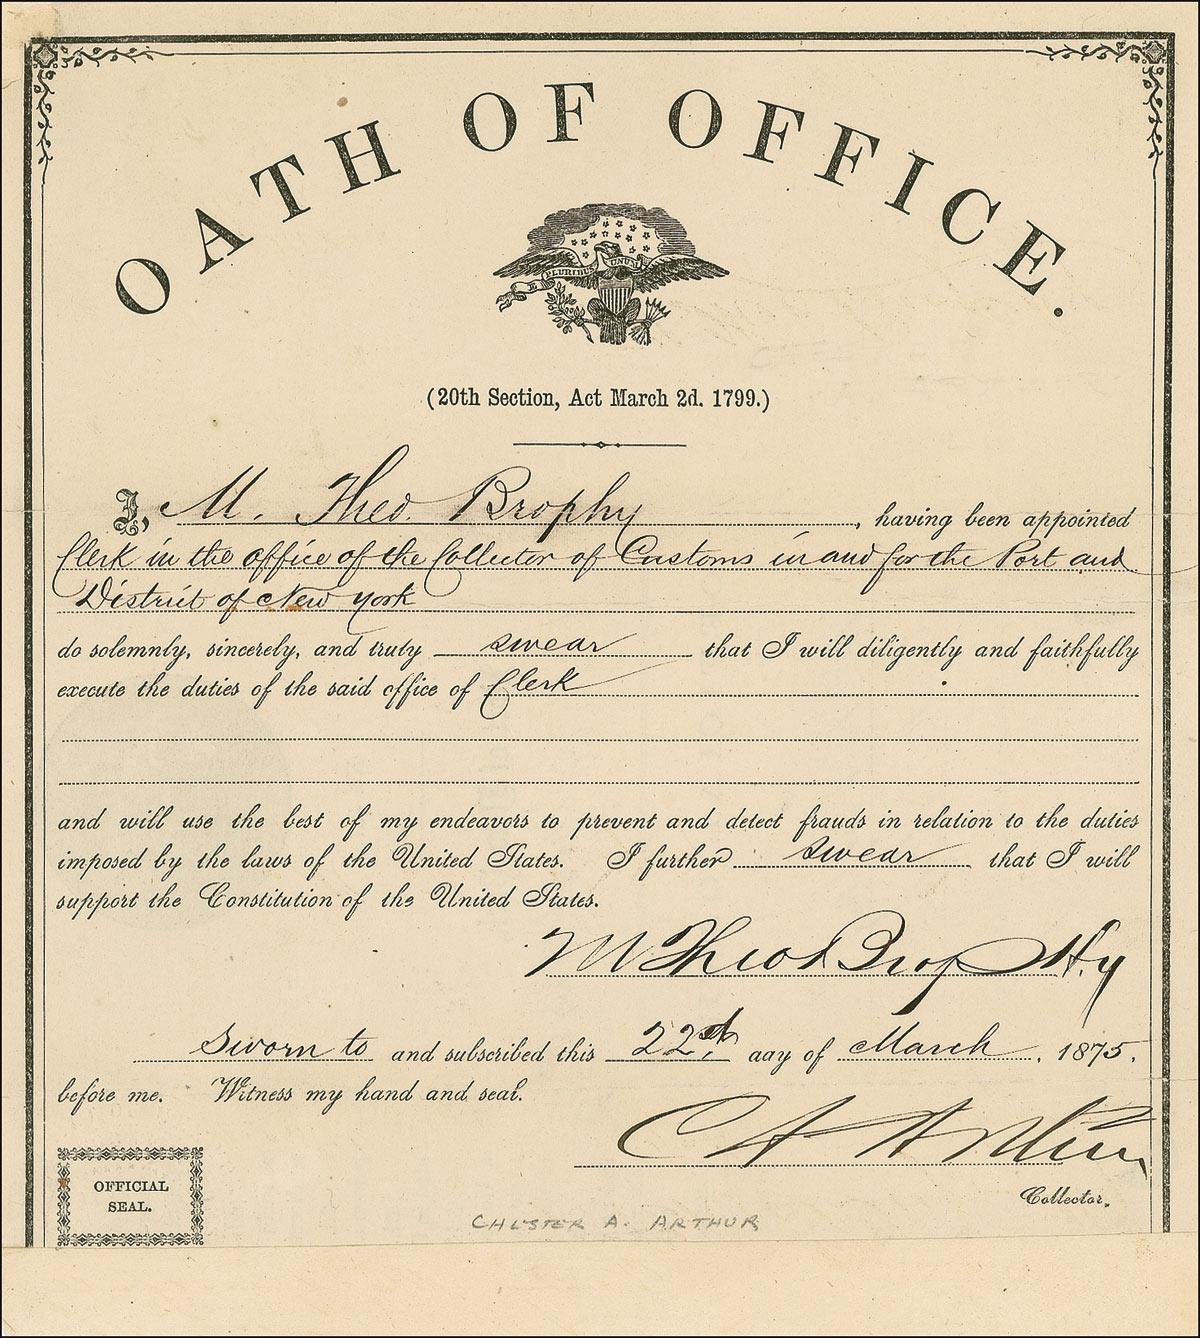 OATH OF OFFICE.
E PLURIBUS UNUM
(20th Section, Act March 2d. 1799.)
I, M. Theo. Brophy, having been appointed
Clerk in the office of the Collector of Customs in and for the Port and
District of New York
do solemnly, sincerely, and truly swear that I will diligently and faithfully
execute the duties of the said office of Clerk
and will use the best of my endeavors to prevent and detect frauds in relation to the duties
imposed by the laws of the United States. I further swear that I will
support the Constitution of the United States.
M Theo Brophy
Sworn to and subscribed this 22d. day of March. 1875.
before me. Witness my hand and seal.
C A Arthur
Collector.
OFFICIAL
SEAL.
CHESTER A. ARTHUR